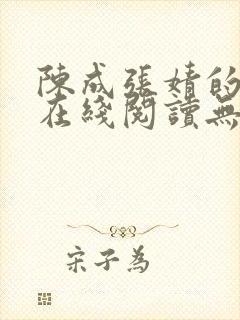 陳成張婧的
在綫閱讀無
宋子為